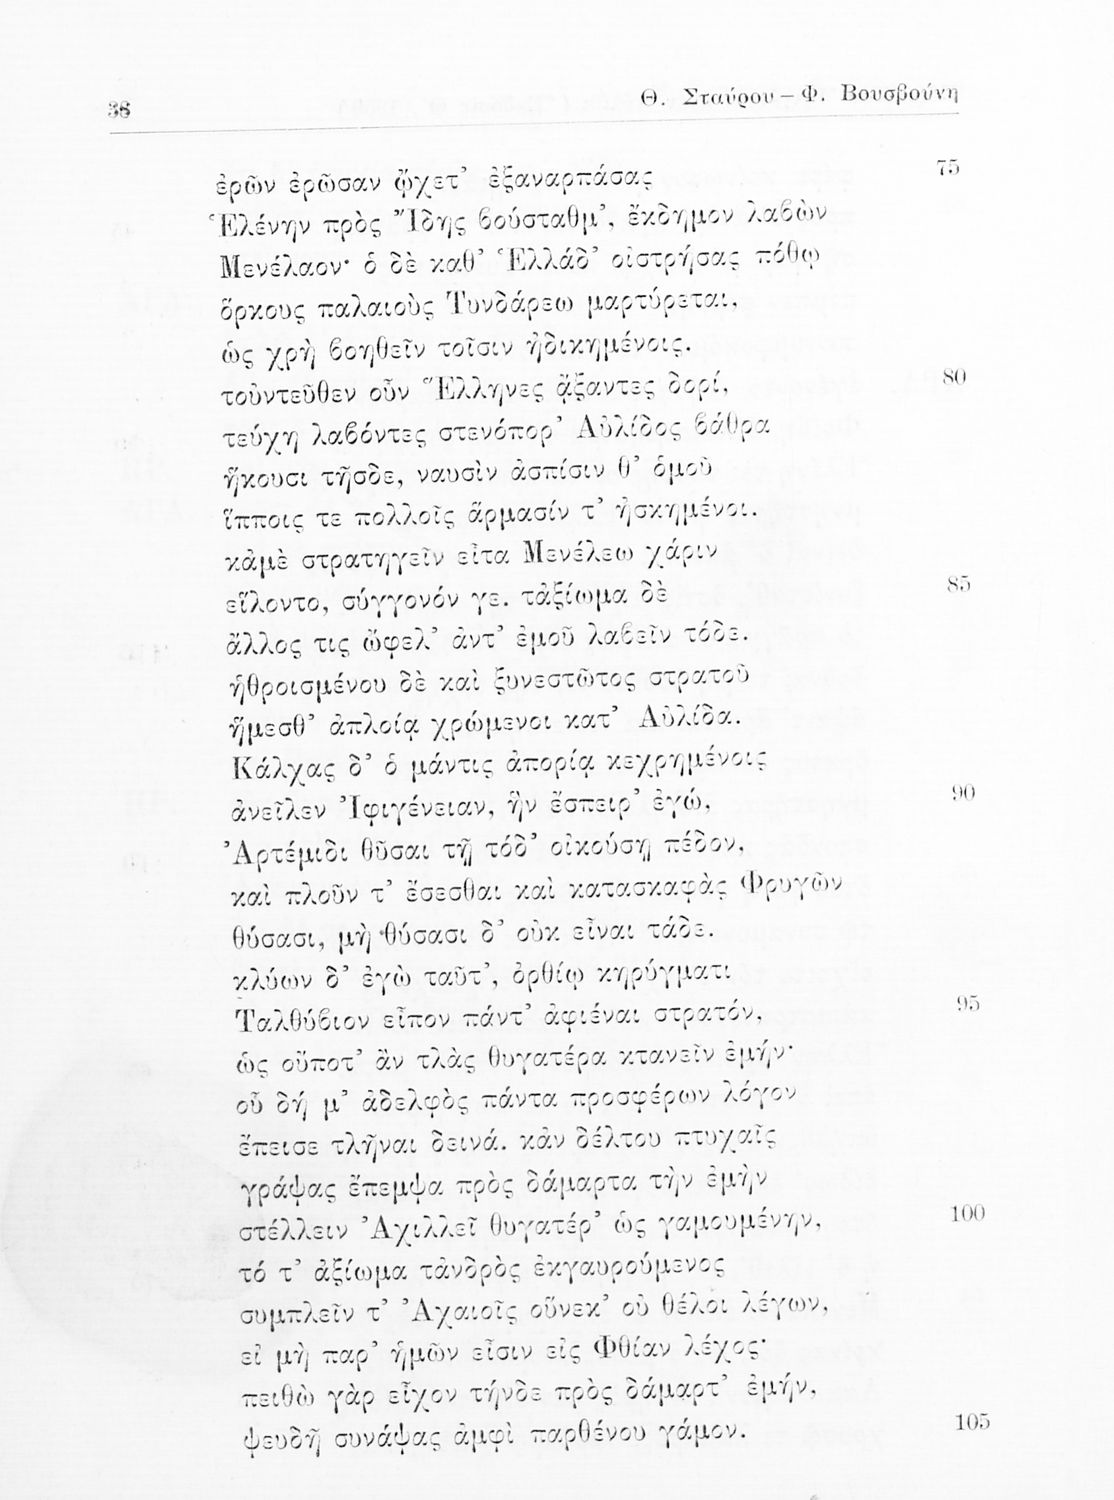 38
Θ. Σταύρου – Φ. Βουσβούνη
ἐρῶν ἐρῶσαν ᾤχετ’ ἐξαναρπάσας 75
Ἑλένην πρὸς Ἴδης βούσταθμ’, ἔκδημον λαβὼν
Μενέλαον· ὁ δὲ καθ’ Ἑλλάδ’ οἰστρήσας πόθῳ
ὅρκους παλαιοὺς Τυνδάρεω μαρτύρεται,
ὡς χρὴ βοηθεῖν τοῖσιν ἠδικημένοις.
τοὐντεῦθεν οὖν Ἕλληνες ᾄξαντες δορί, 80
τεύχη λαβόντες στενόπορ’ Αὐλίδος βάθρα
ἥκουσι τῆσδε, ναυσὶν ἀσπίσιν θ’ ὁμοῦ
ἵπποις τε πολλοῖς ἅρμασίν τ’ ἠσκημένοι.
κἀμὲ στρατηγεῖν εἶτα Μενέλεω χάριν
εἵλοντο, σύγγονόν γε. τἀξίωμα δὲ 85
ἄλλος τις ὤφελ’ ἀντ’ ἐμοῦ λαβεῖν τόδε.
ἠθροισμένου δὲ καὶ ξυνεστῶτος στρατοῦ
ἥμεσθ’ ἀπλοίᾳ χρώμενοι κατ’ Αὐλίδα.
Κάλχας δ’ ὁ μάντις ἀπορίᾳ κεχρημένοις
ἀνεῖλεν Ἰφιγένειαν, ἣν ἔσπειρ’ ἐγώ, 90
Ἀρτέμιδι θῦσαι τῇ τόδ’ οἰκούσῃ πέδον,
καὶ πλοῦν τ’ ἔσεσθαι καὶ κατασκαφὰς Φρυγῶν
θύσασι, μὴ θύσασι δ’ οὐκ εἶναι τάδε.
κλύων δ’ ἐγὼ ταῦτ’, ὀρθίῳ κηρύγματι
Ταλθύβιον εἶπον πάντ’ ἀφιέναι στρατόν, 95
ὡς οὔποτ’ ἂν τλὰς θυγατέρα κτανεῖν ἐμήν·
οὗ δή μ’ ἀδελφὸς πάντα προσφέρων λόγον
ἔπεισε τλῆναι δεινά. κἀν δέλτου πτυχαῖς
γράψας ἔπεμψα πρὸς δάμαρτα τὴν ἐμὴν
στέλλειν Ἀχιλλεῖ θυγατέρ’ ὡς γαμουμένην, 100
τό τ’ ἀξίωμα τἀνδρὸς ἐκγαυρούμενος
συμπλεῖν τ’ Ἀχαιοῖς οὕνεκ’ οὐ θέλοι λέγων,
εἰ μὴ παρ’ ἡμῶν εἶσιν εἰς Φθίαν λέχος·
πειθὼ γὰρ εἶχον τήνδε πρὸς δάμαρτ’ ἐμήν,
ψευδῆ συνάψας ἀμφὶ παρθένου γάμον. 105